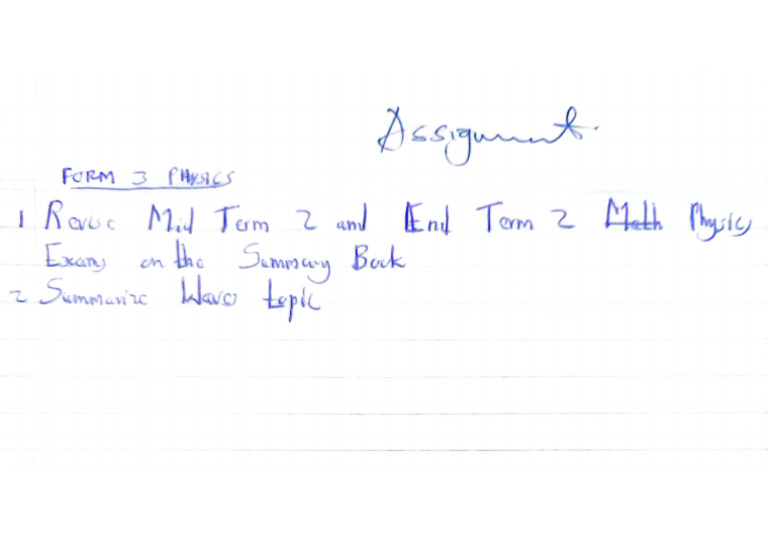 Assignment.
FORM 3 PHYSICS
1 Revise Mid Term 2 and End Term 2 Math Physics
Exams on the Summary Book
2 Summarize Waves topic